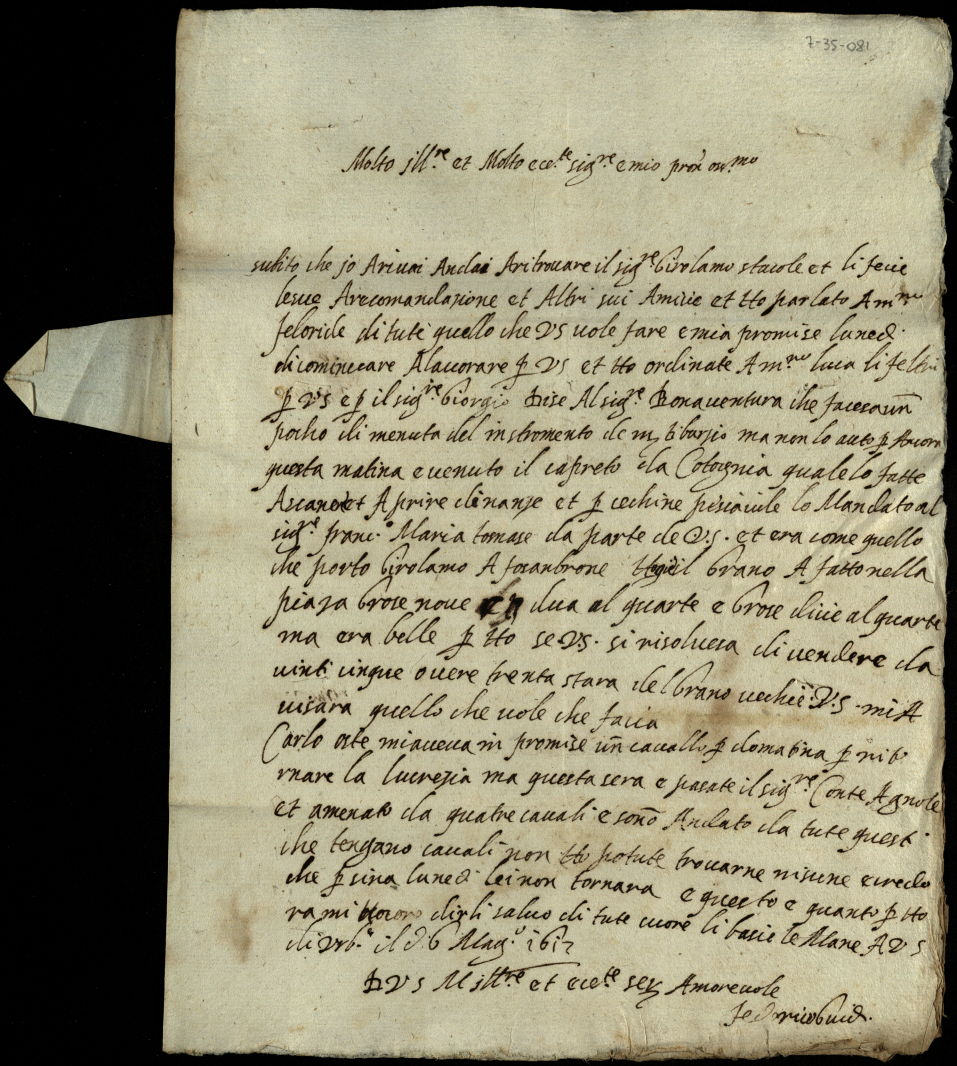 7-35-081
Molto jll.re et Molto ece.te sig.re e mio pron oss.mo
subito che jo Arivai Andai Aritrovare il sig.re Girolamo stacole et li fecie
le sue Arecomandazione et Altri sui Amicie et tto parlato A m.ro
feloride di tuti quello che VS vole fare e mia promise luned.
di cominecare Alavorare p VS et tto ordinate A m.ro luca li feltri
p VS e p il sig.re Giorgio Dise Al sig.re Bonaventura che facesa un
pocho di menuta del instromento de m tiburzio ma non lo auto p Ancora
questa matina e venuto il capreto da Cotognia quale lo fatte
et Aprire dinanze et p cechine lo Mandato al
sig.re franc.o Maria tomase da parte de V.S. et era come quello
che porto Girolamo A fosanbrone il Grano A fatto nella
piaza Grose nove dua al quarte e Grose dicie al quarte
ma era belle p tto se VS. si risolvesa di vendere da
vinti cinque overe trenta stara del Grano vechie V.S. mi A
visara quello che vole che facia
Carlo oste miaveva in promise un cavallo p domatina p rito
rnare la lucrezia ma questa sera e pasate il sig.re Conte Agnole
et amenato da quatre cavali e sono Andato da tute questi
che tengano cavali non tto potute trovarne nisune e credo
che p sina lunedi lei non tornara e questo e quanto p tto
ra mi dirli salvo di tute cuore li bacie le Mane A VS
di Urb.o il d 6 Mag.o 1612
D VS M jll.re et ece.te ser Amorevole
Fedrico Guid.